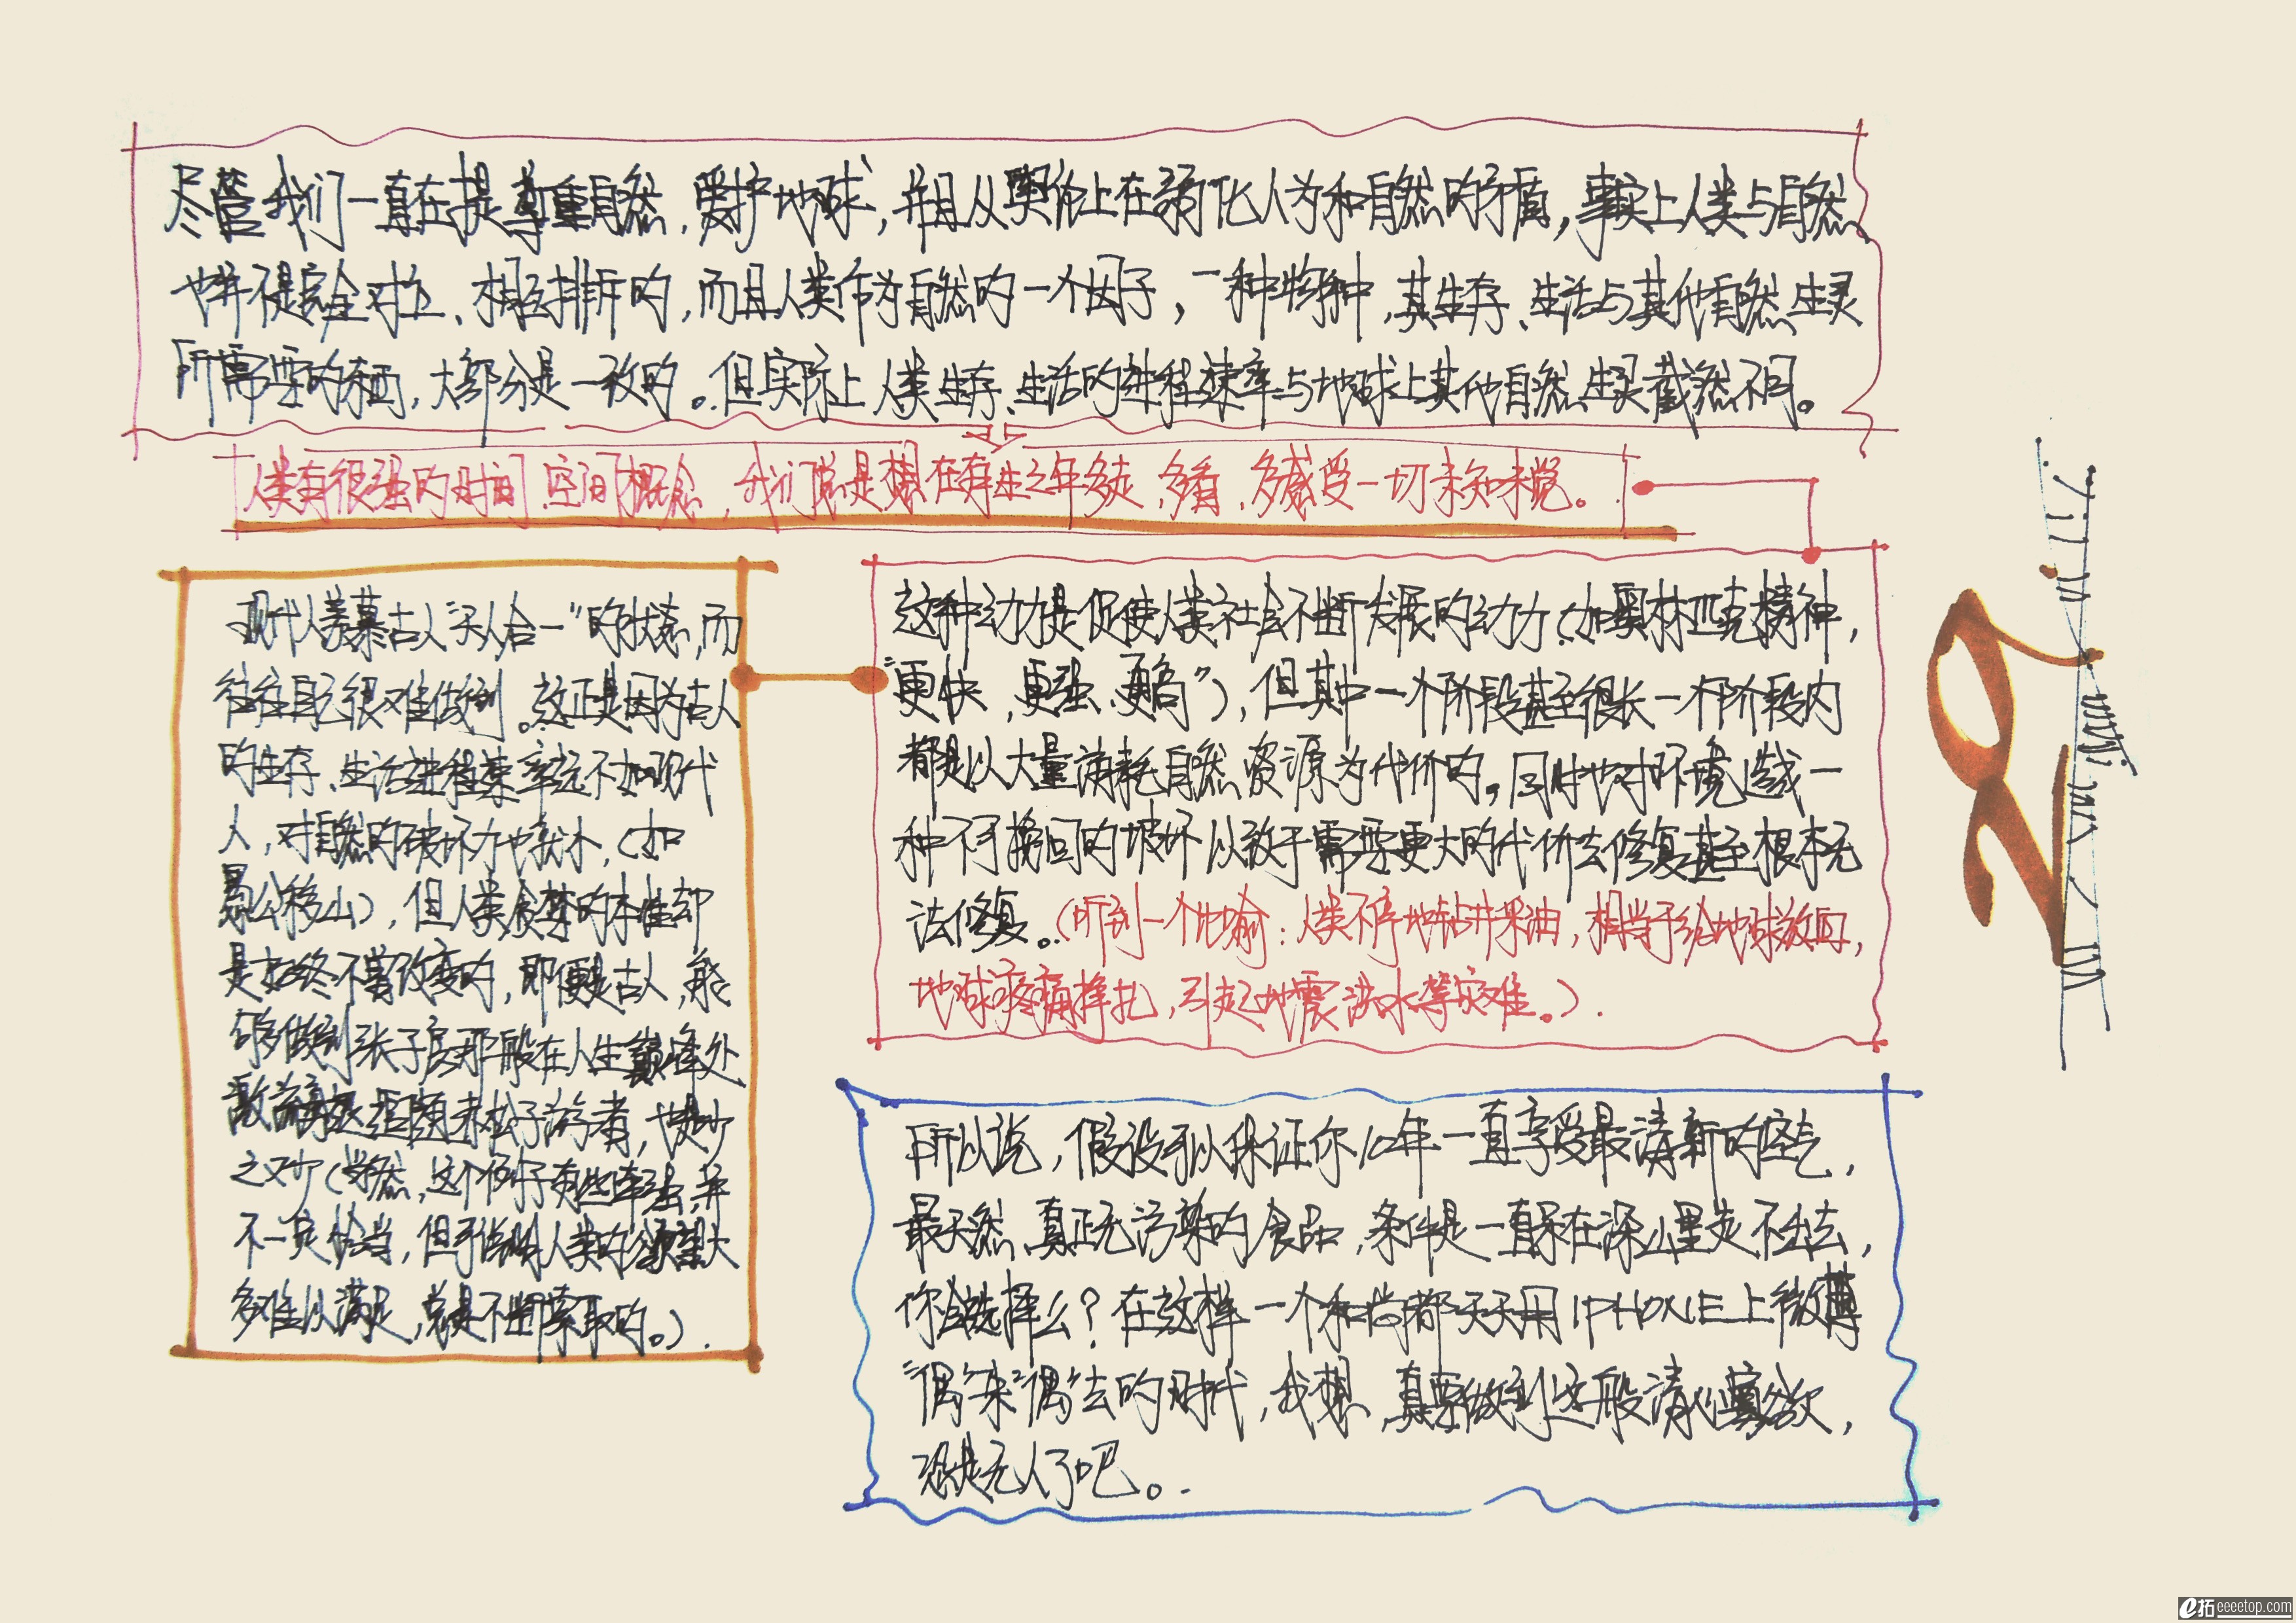 尽管我们一直在提尊重自然,爱护地球,并且从舆论上在弱化人为和自然的矛盾,事实上人类与自然
也并不是完全对立、相互排斥的,而且人类作为自然的一个因子,一种物种,其生存、生活与其他自然生灵
所需要的东西,大部分是一致的。但实际上人类生存、生活的进程速率与地球上其他自然生灵截然不同。
人类有很强的时间、空间概念,我们总是想在有生之年多走、多看、多感受一切未知未觉。
现代人羡慕古人“天人合一”的状态,而
往往自己很难做到。这正是因为古人
的生存、生活进程速率远不如现代
人,对自然的破坏力也较小,(如
愚公移山),但人类贪婪的本性却
是始终不曾改变的,即便是古人,能
够做到张子房那般在人生巅峰处
敢辞退追随赤松子游者,也是少
之又少(当然,这个例子有些牵强,并
不一定恰当,但人类的欲望大
多难以满足,总是不断索取的。)
这种动力是促使人类社会不断发展的动力(如奥林匹克精神,
“更快、更强、更高”),但其中一个阶段甚至很长一个阶段内
都是以大量消耗自然资源为代价的。同时也对环境造成一
种不可挽回的破坏以致于需要更大的代价去修复甚至根本无
法修复。(听到一个比喻:人类不停地钻井采油,相当于给地球放血,
地球疼痛挣扎,引起地震洪水等灾难。)
所以说,假设可以保证你10年一直享受最清新的空气,
最天然、真正无污染的食品,条件是一直躲在深山里走不出去,
你会选择么?在这样一个和尚都天天用IPHONE上微薄
“偶”来“偶”去的时代,我想,真要做到这般清心寡欲,
恐是无人了吧。
29
e拓 eeeetop.com